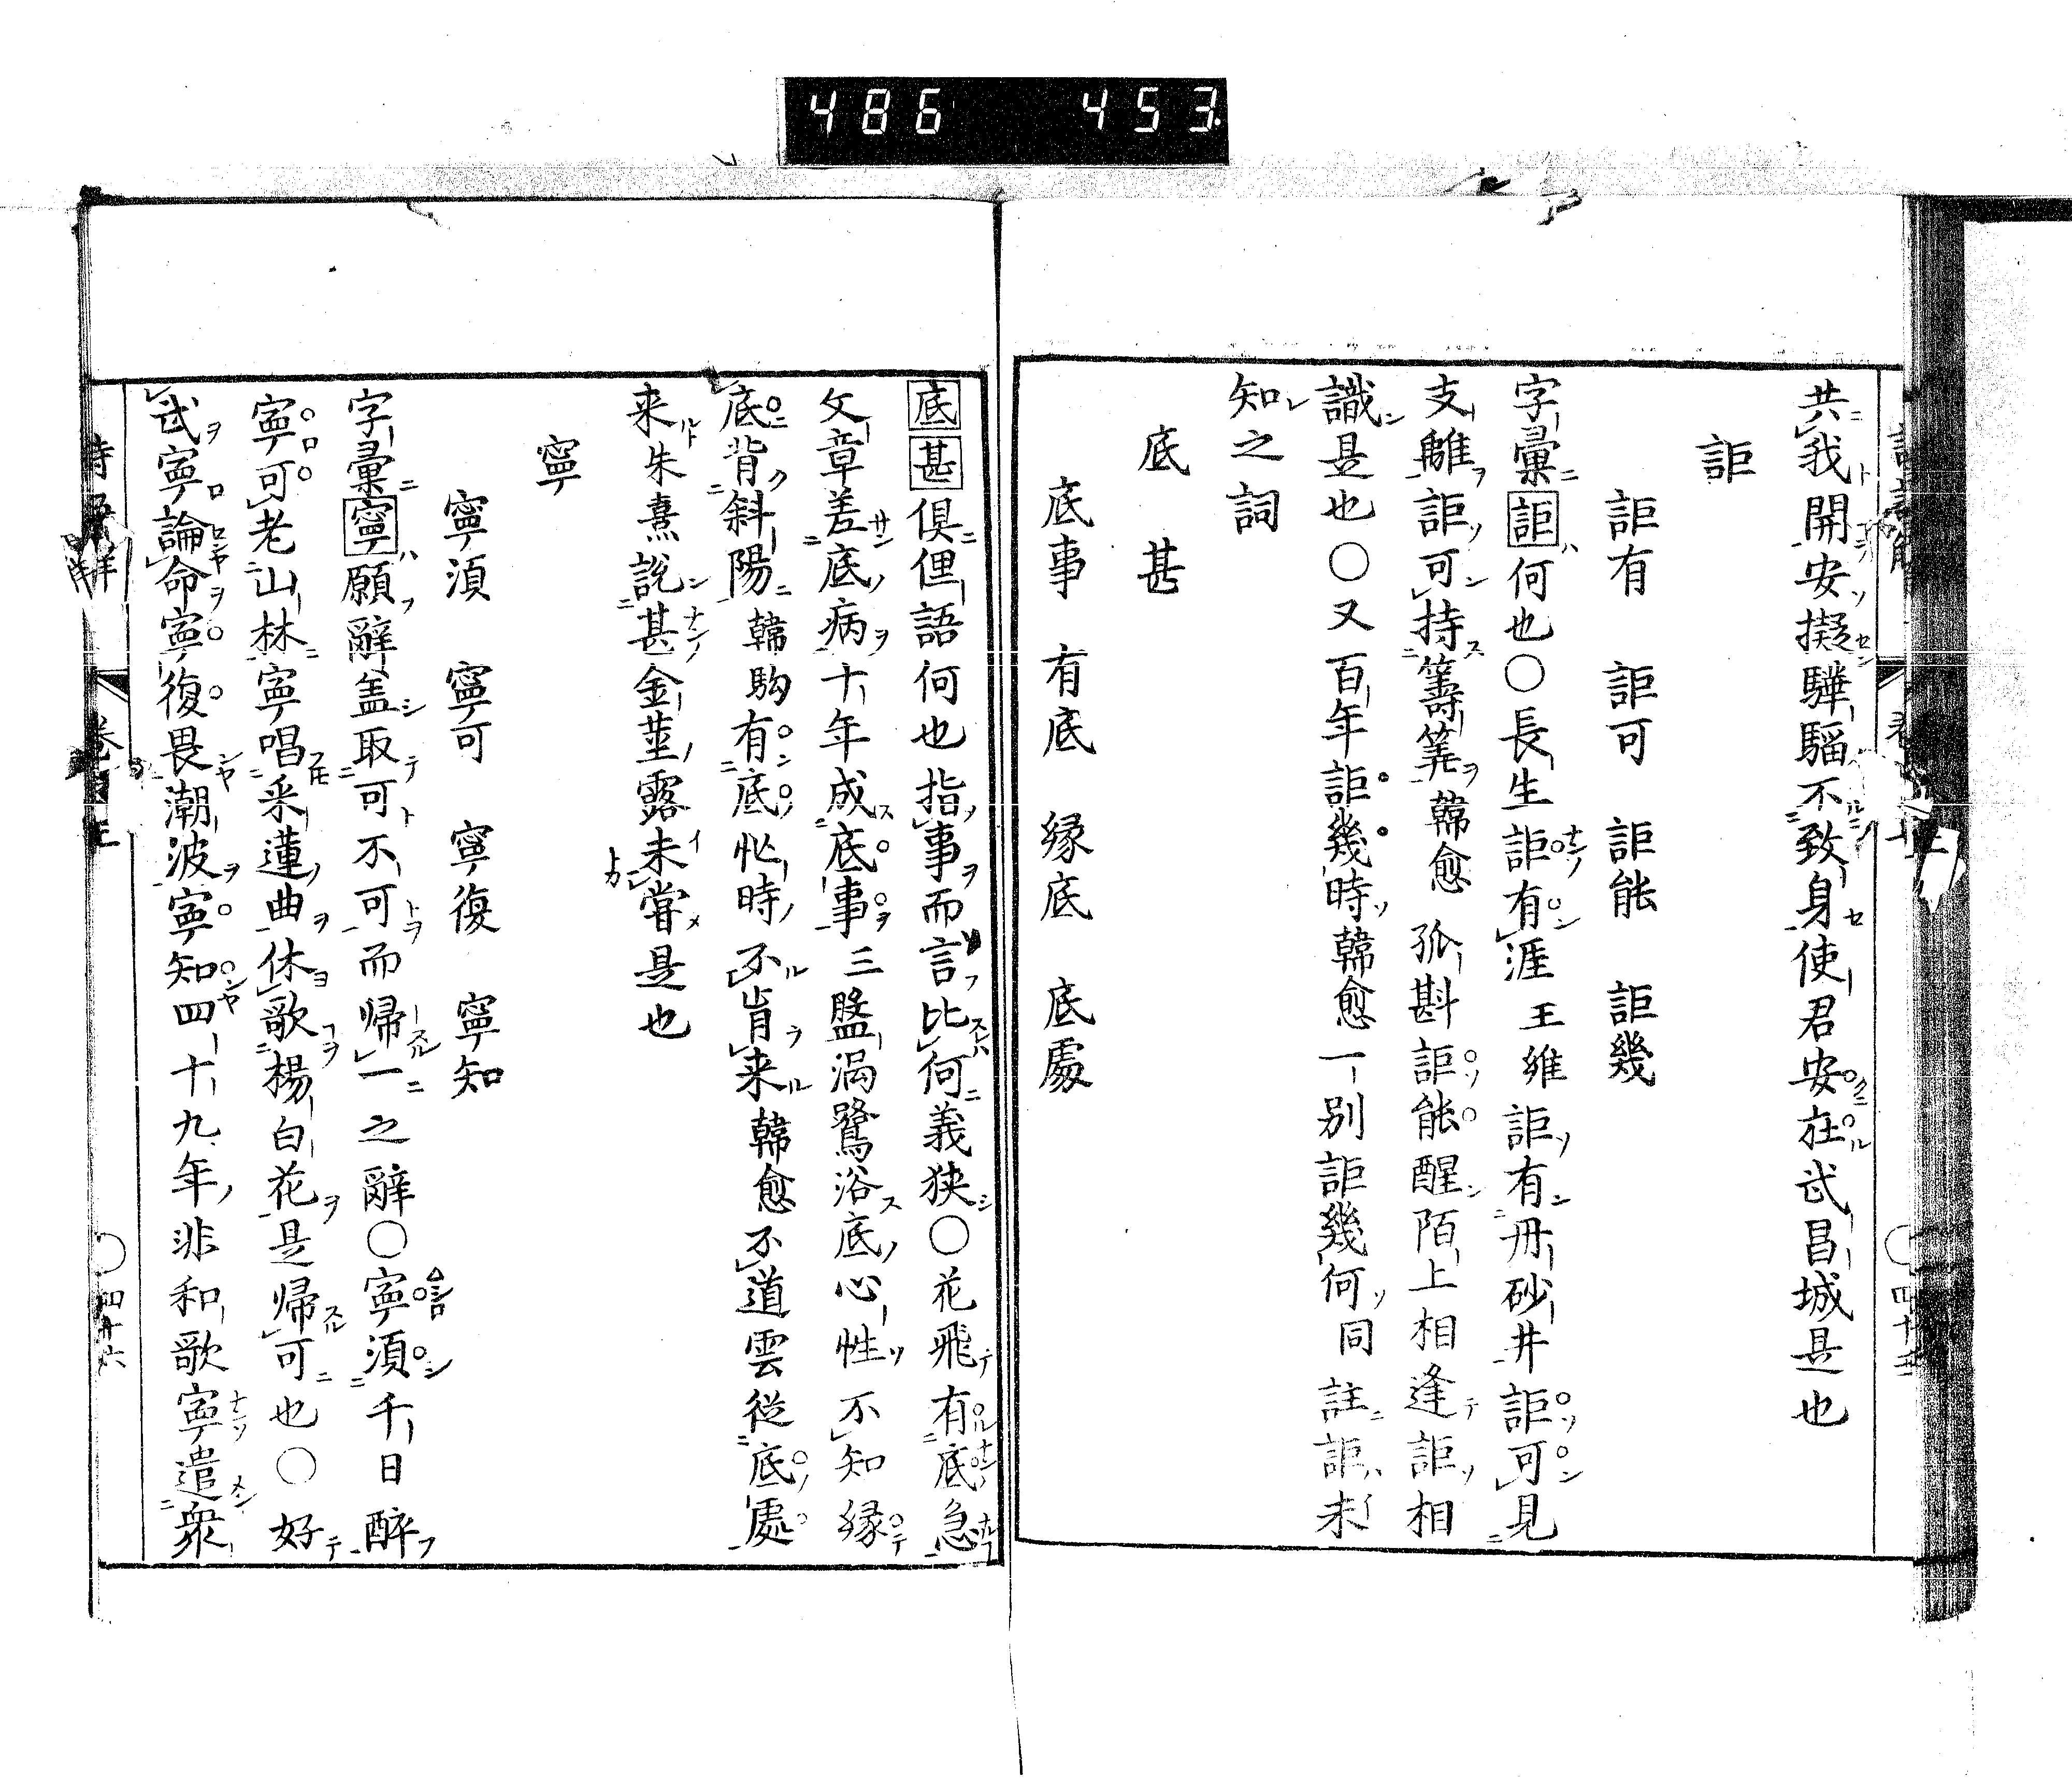 486 453
共我開安擬驊騮不致身使君安在武昌城是也
詎
詎有 詎可 詎能 詎幾
字彙詎何也○長生詎有涯王維詎有丹砂井詎可見
支離詎可持籌筭韓愈孤斟詎能醒陌上相逢詎相
識是也○又百年詎幾時韓愈一別詎幾何同註詎未
知之詞
底甚
底事 有底 縁底 底處
底甚俱俚語何也指事而言比何義狹○花飛有底急
文章差底病十年成底事三盤渴鷺浴底心性不知縁
底背斜陽韓駒有底忙時不肯来韓愈不道雲從底處
来朱熹説甚金莖露未嘗是也
寧
寧須 寧可 寧復 寧知
字彙寧願辭盖取可不可而帰一之辭○寧須千日醉
寧可老山林寧唱釆蓮曲休歌楊白花是帰可也○好
武寧論命寧復畏潮波寧知四十九年非和歌寧遣衆
四十六